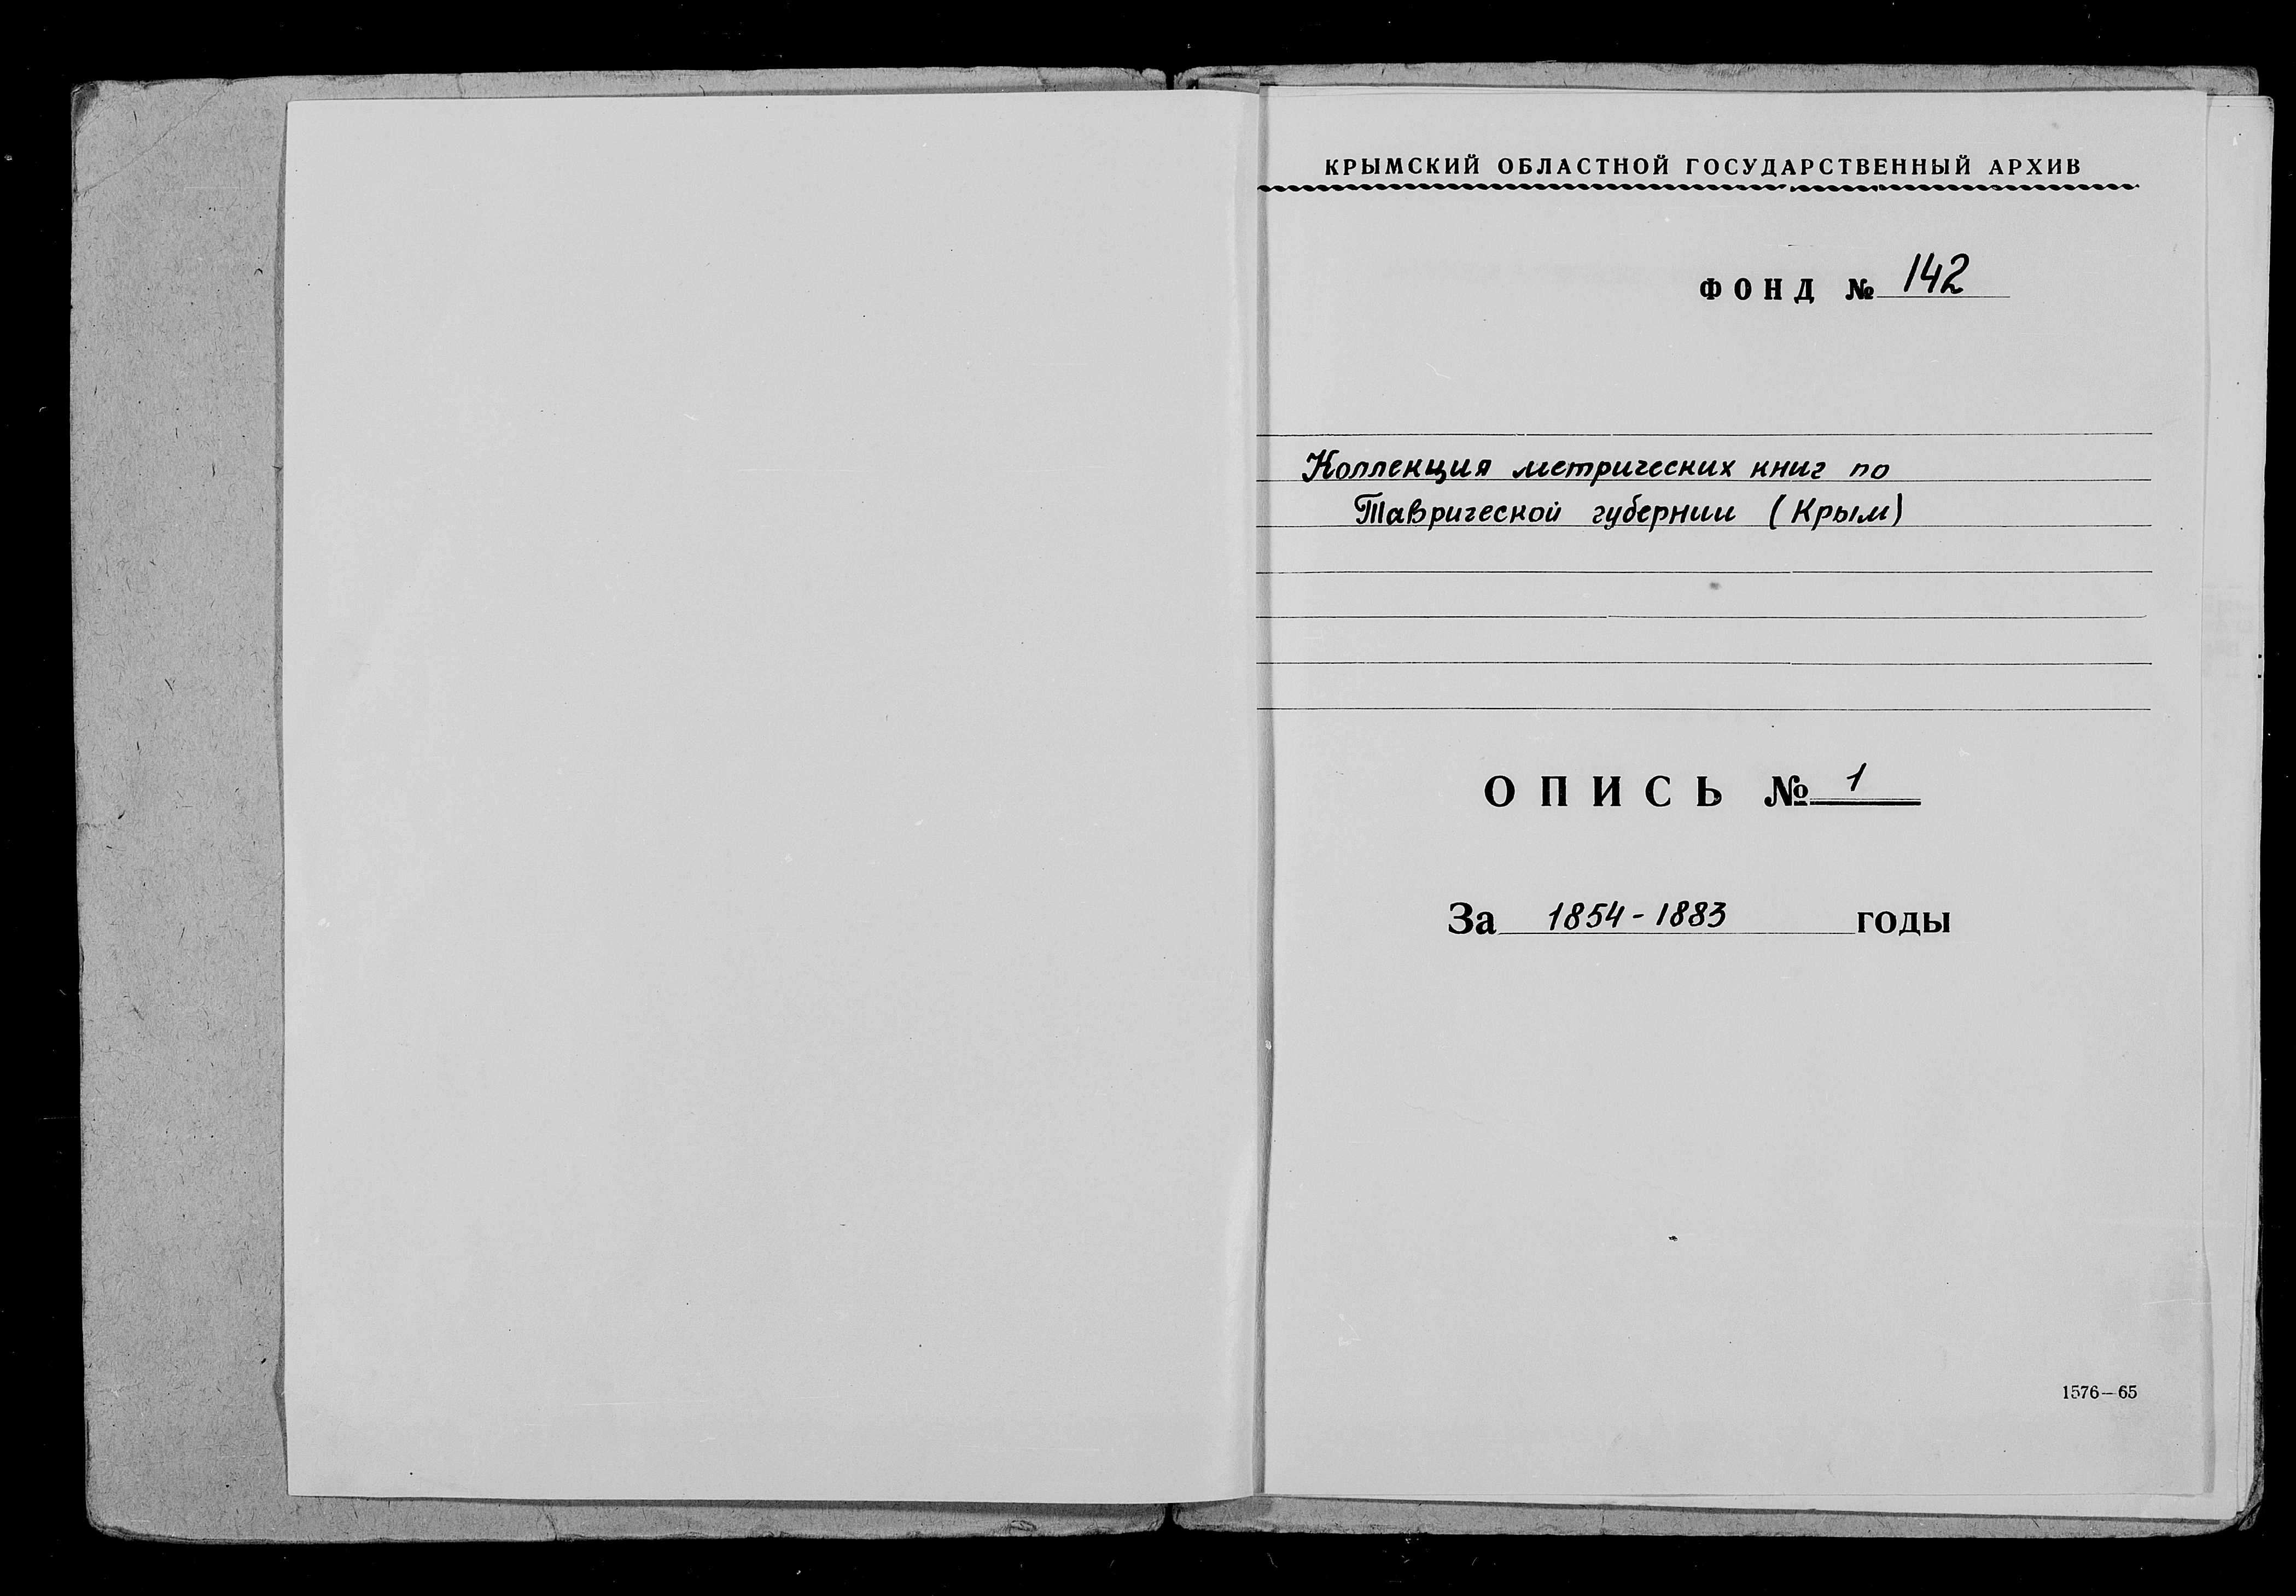 КРЫМСКИЙ ОБЛАСТНОЙ ГОСУДАРСТВЕННЫЙ АРХИВ
ФОНД № 142
Коллекция метрических книг по
Таврической губернии (Крым)
ОПИСЬ № 1
За 1854-1883 годы
1576—65